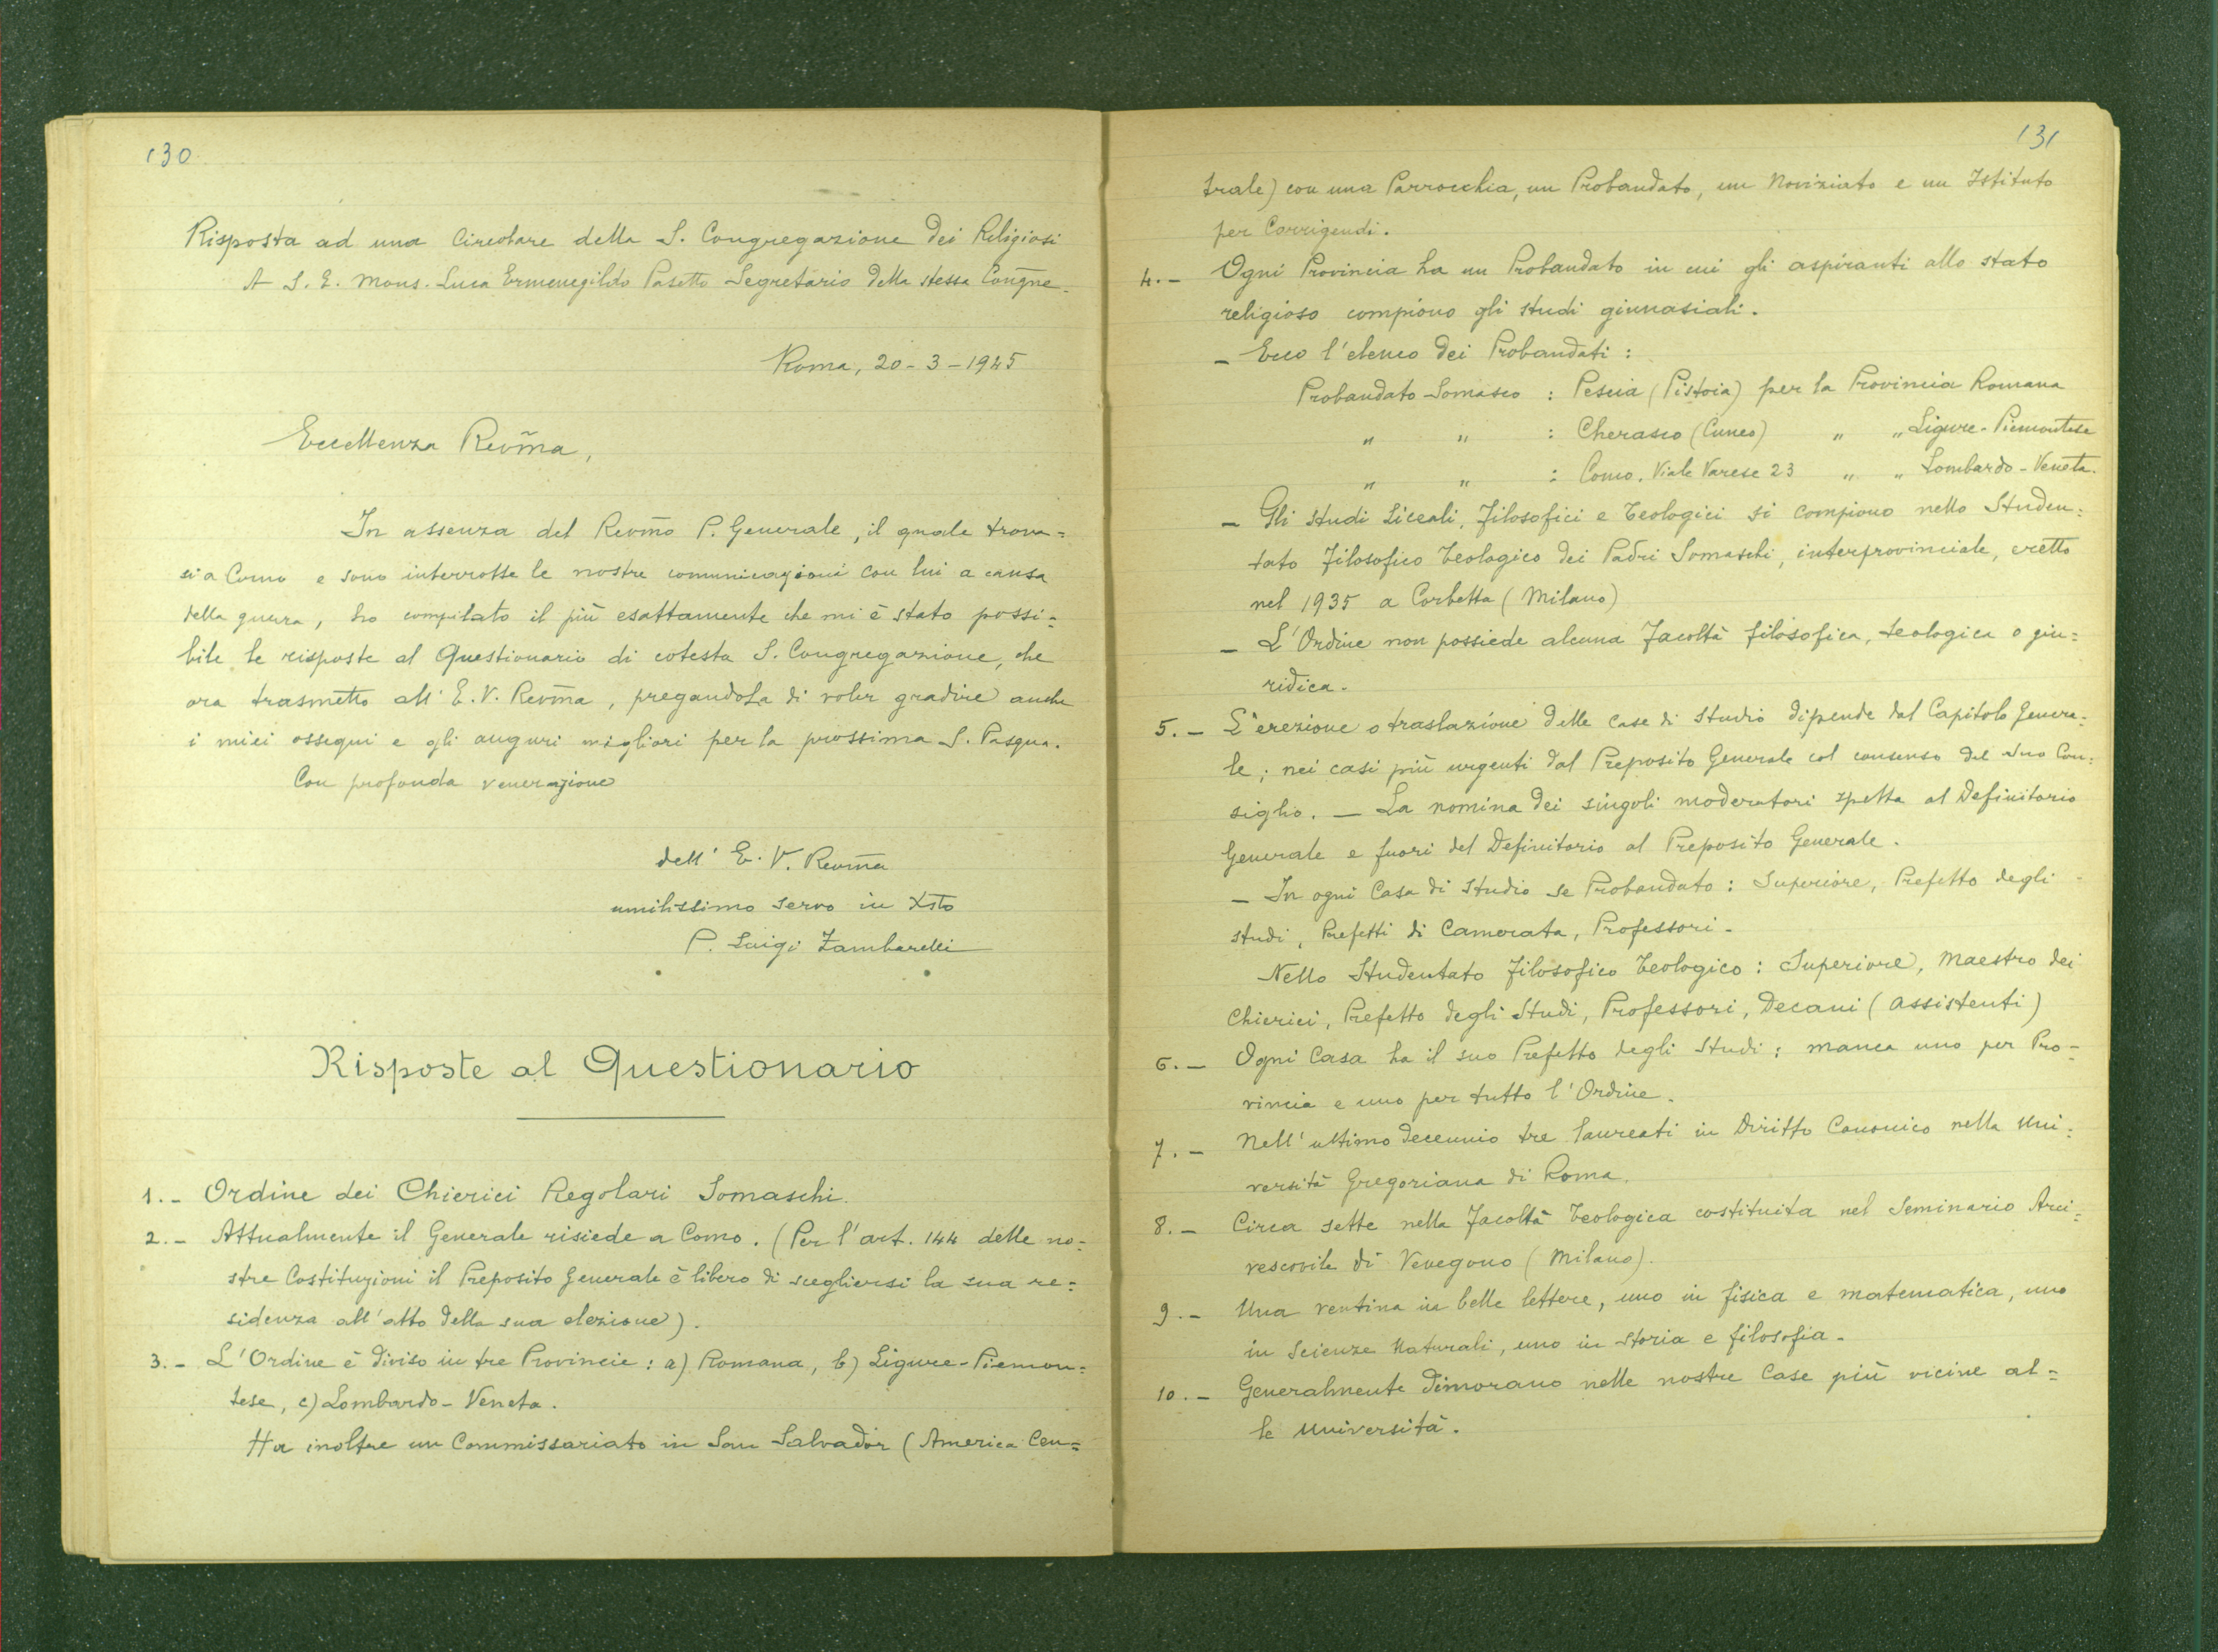 130
Risposta ad una Circolare della S. Congregazione dei Religiosi
A S. E. Mons. Luca Ermenegildo Pasetto Segretario della stessa Congne.
Roma, 20-3-1945
Eccellenza Revm̃a,
In assenza del Revm̃o P. Generale, il quale trova=
si a Como e sono interrotte le nostre comunicazioni con lui a causa
della guerra, ho compilato il più esattamente che mi è stato possi=
bile le risposte al Questionario di cotesta S. Congregazione, che
ora trasmetto all'E.V. Revm̃a, pregandoLa di voler gradire anche
i miei ossequi e gli auguri migliori per la prossima S. Pasqua.
Con profonda venerazione
dell'E.V. Revm̃a
umilissimo servo in Xsto
P. Luigi Zambarelli
Risposte al Questionario
1.- Ordine dei Chierici Regolari Somaschi.
2.- Attualmente il Generale risiede a Como. (Per l'art. 144 delle no=
stre Costituzioni il Preposito Generale è libero di scegliersi la sua re=
sidenza all'atto della sua elezione).
3.- L'Ordine è diviso in tre Provincie: a) Romana, b) Ligure-Piemon=
tese, c) Lombardo-Veneta.
Ha inoltre un Commissariato in San Salvador (America Cen=
131
trale) con una Parrocchia, un Probandato, un Noviziato e un Istituto
per Corrigendi.
4.- Ogni Provincia ha un Probandato in cui gli aspiranti allo stato
religioso compiono gli studi ginnasiali.
- Ecco l'elenco dei Probandati:
Probandato Somasco : Pescia (Pistoia) per la Provincia Romana
" " : Cherasco (Cuneo) " " Ligure-Piemontese
" " : Como. Viale Varese 23 " " Lombardo-Veneta.
- Gli studi Liceali, Filosofici e Teologici si compiono nello Studen=
tato Filosofico Teologico dei Padri Somaschi, interprovinciale, eretto
nel 1935 a Corbetta (Milano)
- L'Ordine non possiede alcuna Facoltà filosofica, teologica o giu=
ridica.
5.- L'erezione o traslazione delle case di studio dipende dal Capitolo Genera=
le; nei casi più urgenti dal Preposito Generale col consenso del suo Con=
siglio. - La nomina dei singoli moderatori spetta al Definitorio
Generale e fuori del Definitorio al Preposito Generale.
- In ogni Casa di studio se Probandato: Superiore, Prefetto degli
studi, Prefetti di Camerata, Professori.
Nello Studentato Filosofico Teologico: Superiore, Maestro dei
Chierici, Prefetto degli Studi, Professori, Decani (assistenti)
6.- Ogni Casa ha il suo Prefetto degli Studi; manca uno per Pro-
vincia e uno per tutto l'Ordine.
7.- Nell'ultimo decennio tre laureati in Diritto Canonico nella Uni=
versità Gregoriana di Roma.
8.- Circa sette nella Facoltà Teologica costituita nel Seminario Arci=
vescovile di Venegono (Milano).
9.- Una ventina in belle lettere, uno in fisica e matematica, uno
in Scienze Naturali, uno in storia e filosofia.
10.- Generalmente dimorano nelle nostre Case più vicine al=
le Università.